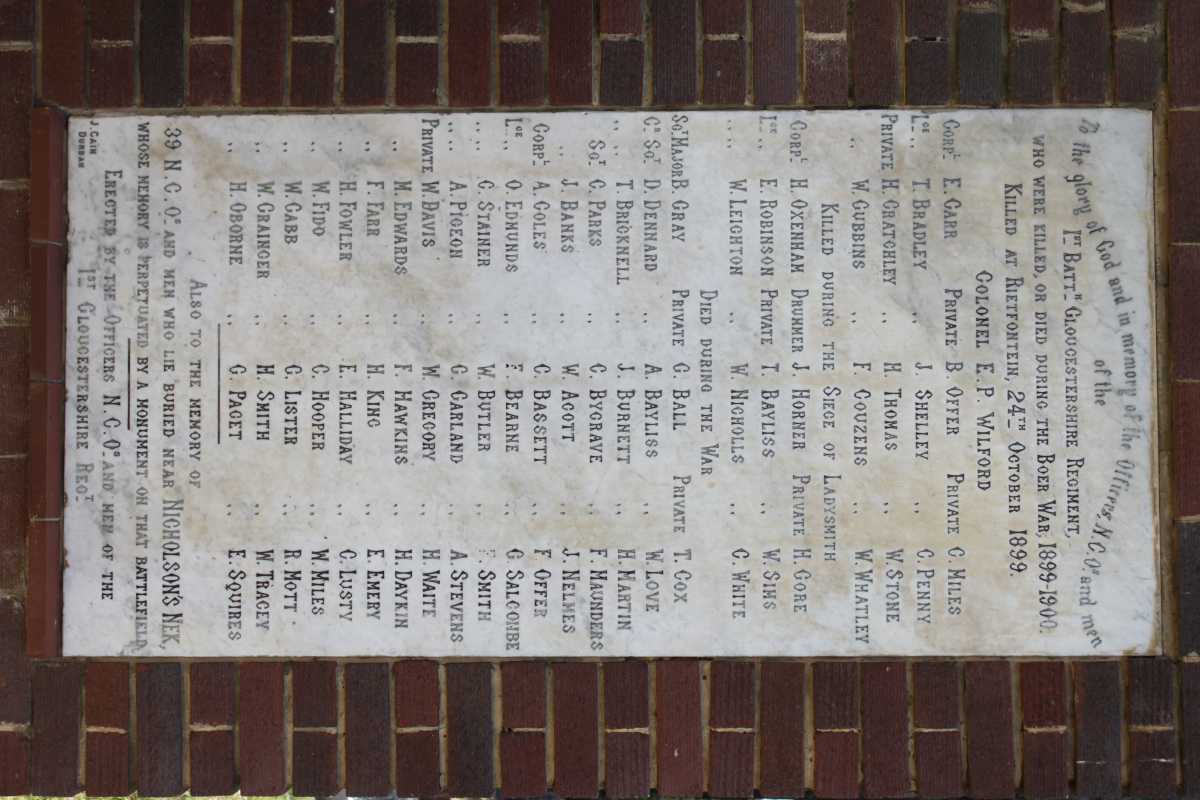 To the glory of God and in memory of the Officers, N.C.Os and men
of the
1st Battn Gloucestershire Regiment,
who were killed, or died during the Boer War, 1899-1900.
Killed at Rietfontein, 24th October 1899.
Colonel E. P. Wilford
Corpl E. Carr Private B. Offer Private C. Miles
Lce ,, T. Bradley ,, J. Shelley ,, C. Penny
Private H. Cratchley ,, H. Thomas ,, W. Stone
,, W. Gubbins ,, F. Couzens ,, W. Whatley
Killed during the Siege of Ladysmith
Corpl H. Oxenham Drummer J. Horner Private H. Gore
Lce ,, E. Robinson Private T. Bayliss ,, W. Sims
,, ,, W. Leighton ,, W. Nicholls ,, C. White
Died during the War
Sgt Major B. Gray Private G. Ball Private T. Cox
Cr Sgt D. Dennard ,, A. Bayliss ,, W. Love
,, ,, T. Bricknell ,, J. Burnett ,, H. Martin
,, Sgt C. Parks ,, C. Bygrave ,, F. Maunders
,, J. Banks ,, W. Acott ,, J. Nelmes
Corpl A. Coles ,, C. Bassett ,, F. Offer
Lce ,, O. Edmunds ,, F. Bearne ,, G. Salcombe
,, ,, C. Stainer ,, W. Butler ,, F. Smith
,, ,, A. Pigeon ,, G. Garland ,, A. Stevens
Private W. Davis ,, W. Gregory ,, H. Waite
,, M. Edwards ,, F. Hawkins ,, H. Daykin
,, F. Farr ,, H. King ,, E. Emery
,, H. Fowler ,, E. Halliday ,, C. Lusty
,, W. Fido ,, C. Hooper ,, W. Miles
,, W. Gabb ,, G. Lister ,, R. Mott
,, W. Grainger ,, H. Smith ,, W. Tracey
,, H. Oborne ,, G. Paget ,, E. Squires
Also to the memory of
39 N.C.Os and men who lie buried near Nicholson's Nek,
whose memory is perpetuated by a monument on that battlefield.
Erected by the Officers N.C.Os and men of the
1st Gloucestershire Regt
J. Cain
Durban